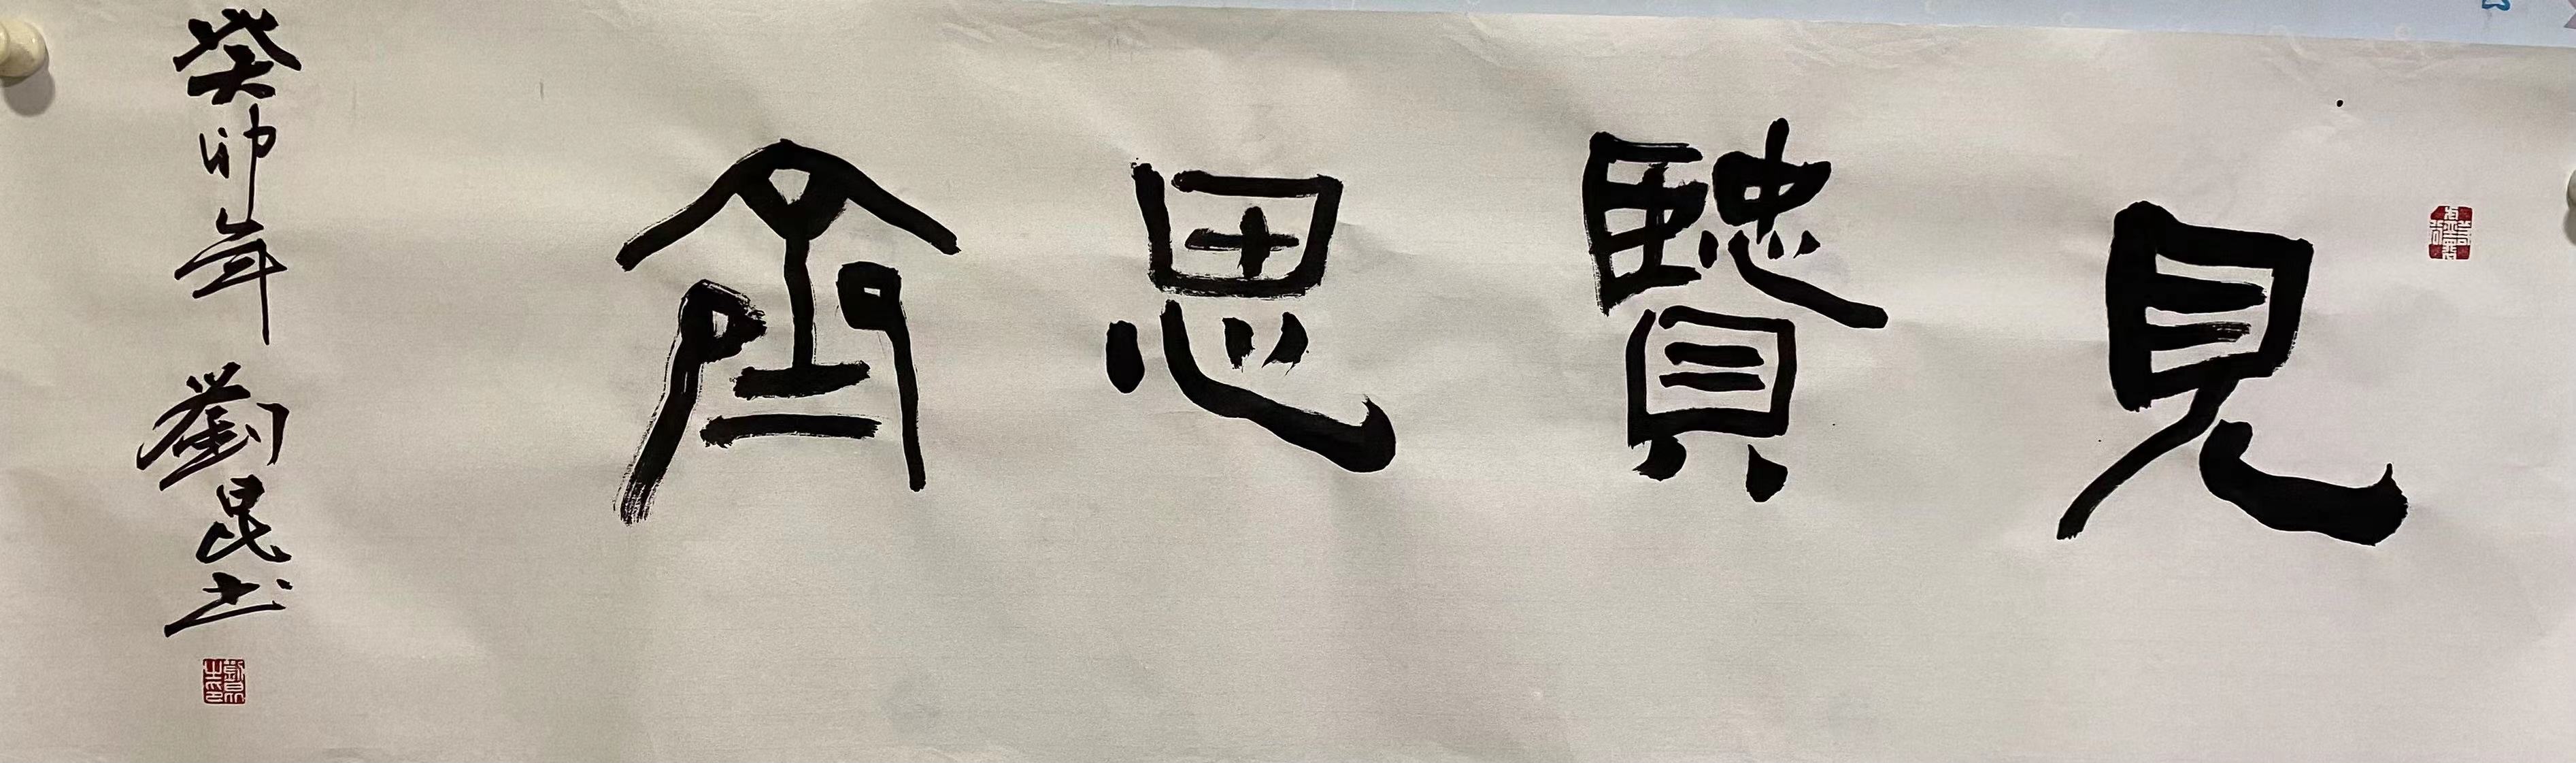 見賢思齊
癸卯年 劉昆书